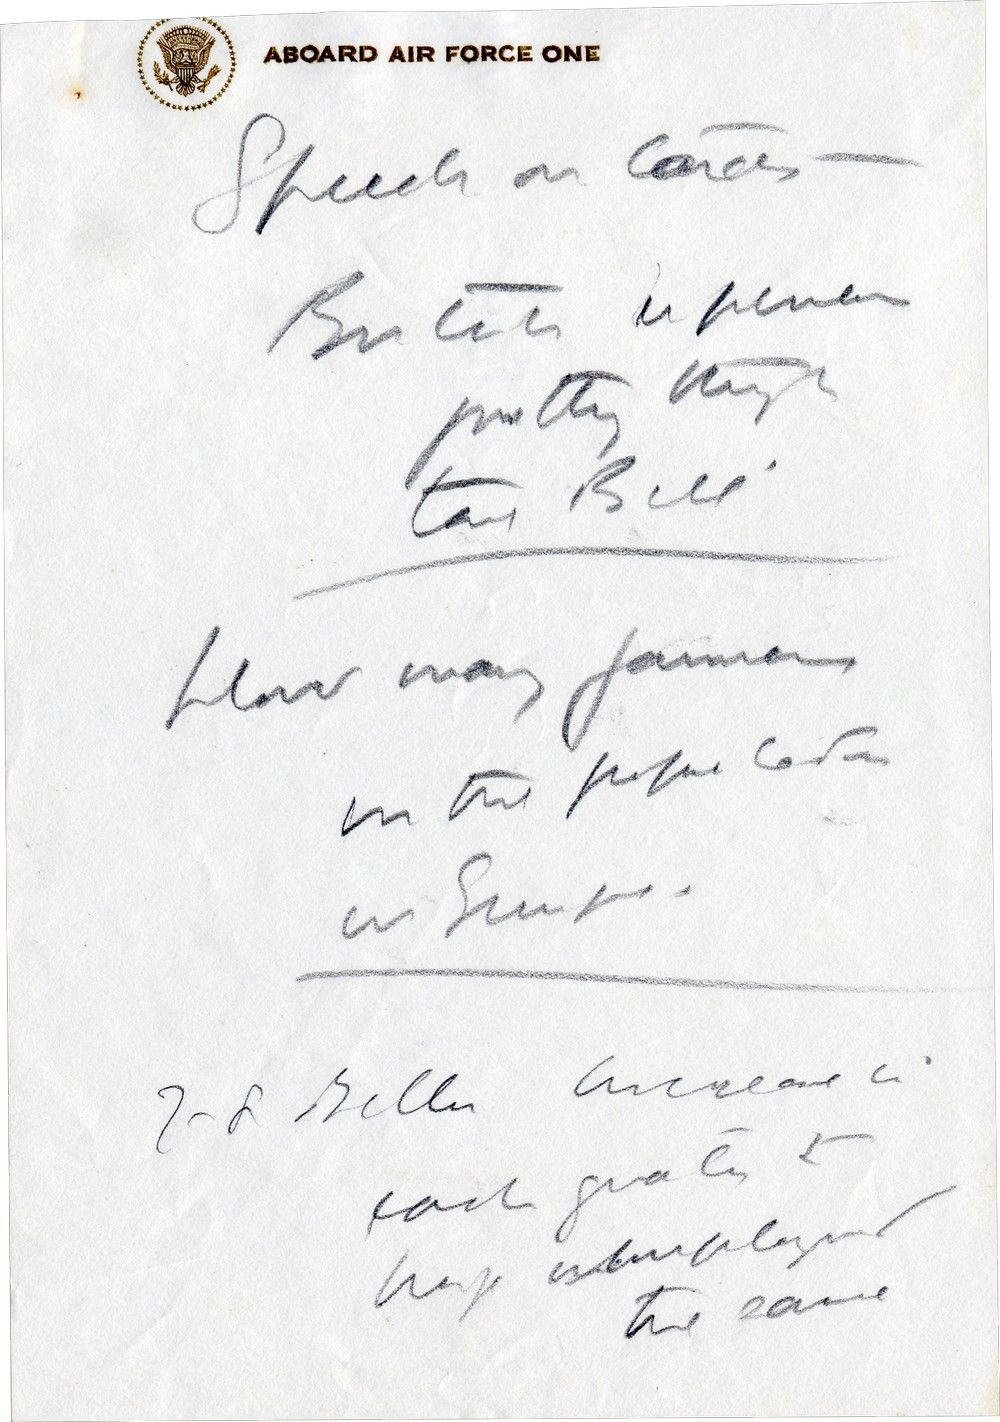 ABOARD AIR FORCE ONE
Speech on Cards —
British
pretty
tax Bill
How many farmers
in the population
in Europe.
7-8 Billion increase in
each quarter to
keep unemployment
the same